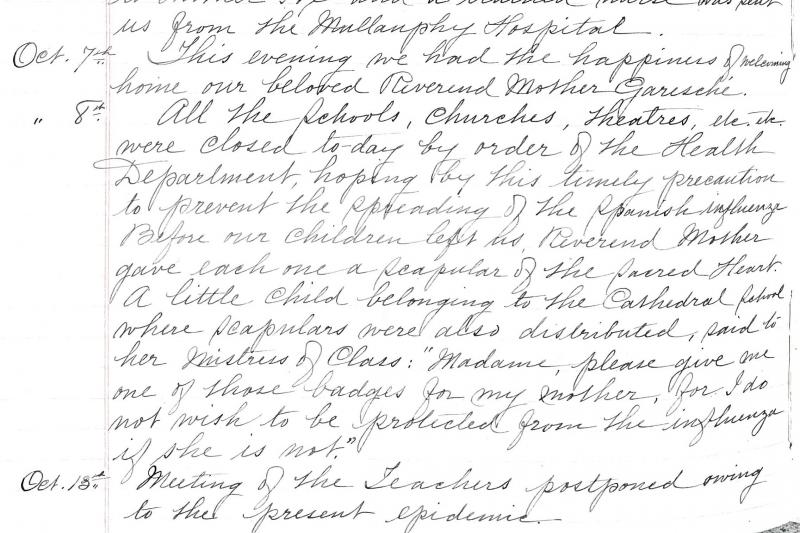 and a trained nurse was sent
us from the Mullanphy Hospital.
Oct. 7th This evening we had the happiness of welcoming
home our beloved Reverend Mother Garesché.
" 8th All the schools, churches, theatres, etc. etc.
were closed to-day by order of the Health
Department, hoping by this timely precaution
to prevent the spreading of the Spanish influenza
Before our children left us, Reverend Mother
gave each one a scapular of the Sacred Heart.
A little child belonging to the Cathedral School
where scapulars were also distributed, said to
her Mistress of Class: "Madame, please give me
one of those badges for my mother, for I do
not wish to be protected from the influenza
if she is not."
Oct. 13th Meeting of the Teachers postponed owing
to the present epidemic.